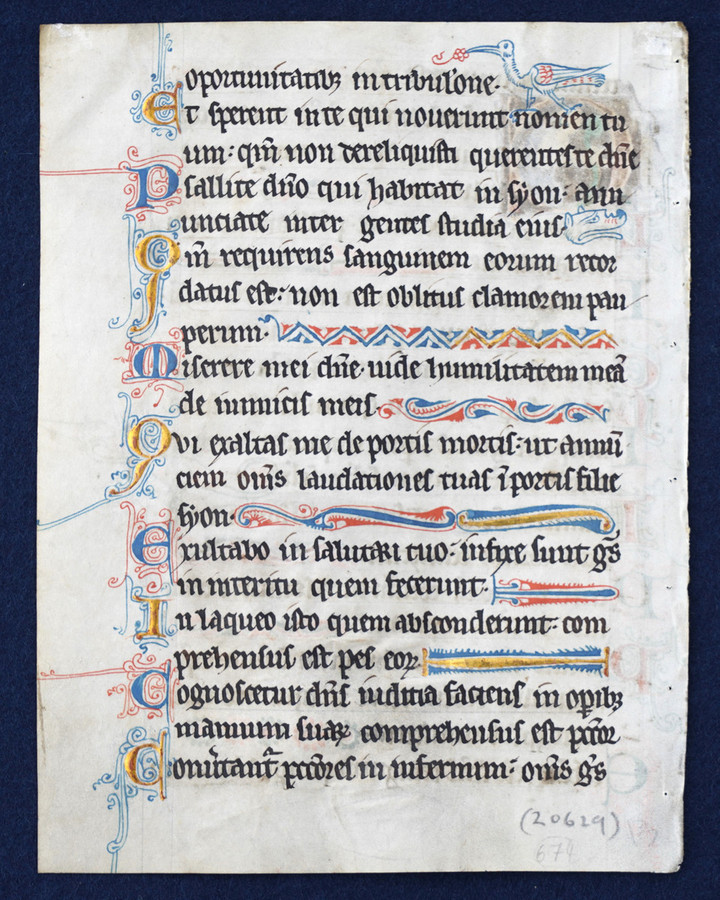 oportunitatibꝫ in tribulone·
Et sperent in te qui noverunt nomen tu
um: qm̄ non dereliquisti querentes te dn̄e
Psallite dn̄o qui habitat in syon: ann
unciate inter gentes studia eius·
Qm̄ requirens sanguinem eorum recor
datus est: non est oblitus clamorem pau
perum·
Miserere mei dn̄e· uide humilitatem meā
de inimicis meis·
Qvi exaltas me de portis mortis: ut annū
ciem om̄s laudationes tuas ī portis filie
syon·
Exultabo in salutari tuo: infixe sunt gn̄s
in interitu quem fecerunt·
In laqueo isto quem absconderunt: com
prehensus est pes eoꝝ
Cognoscetur dn̄s iuditia faciens in opibꝫ
manuum suaꝝ comprehensus est pcc̄or
Conūtant᷑ pcc̄ores in infernum: om̄s gn̄s
(20629)
674